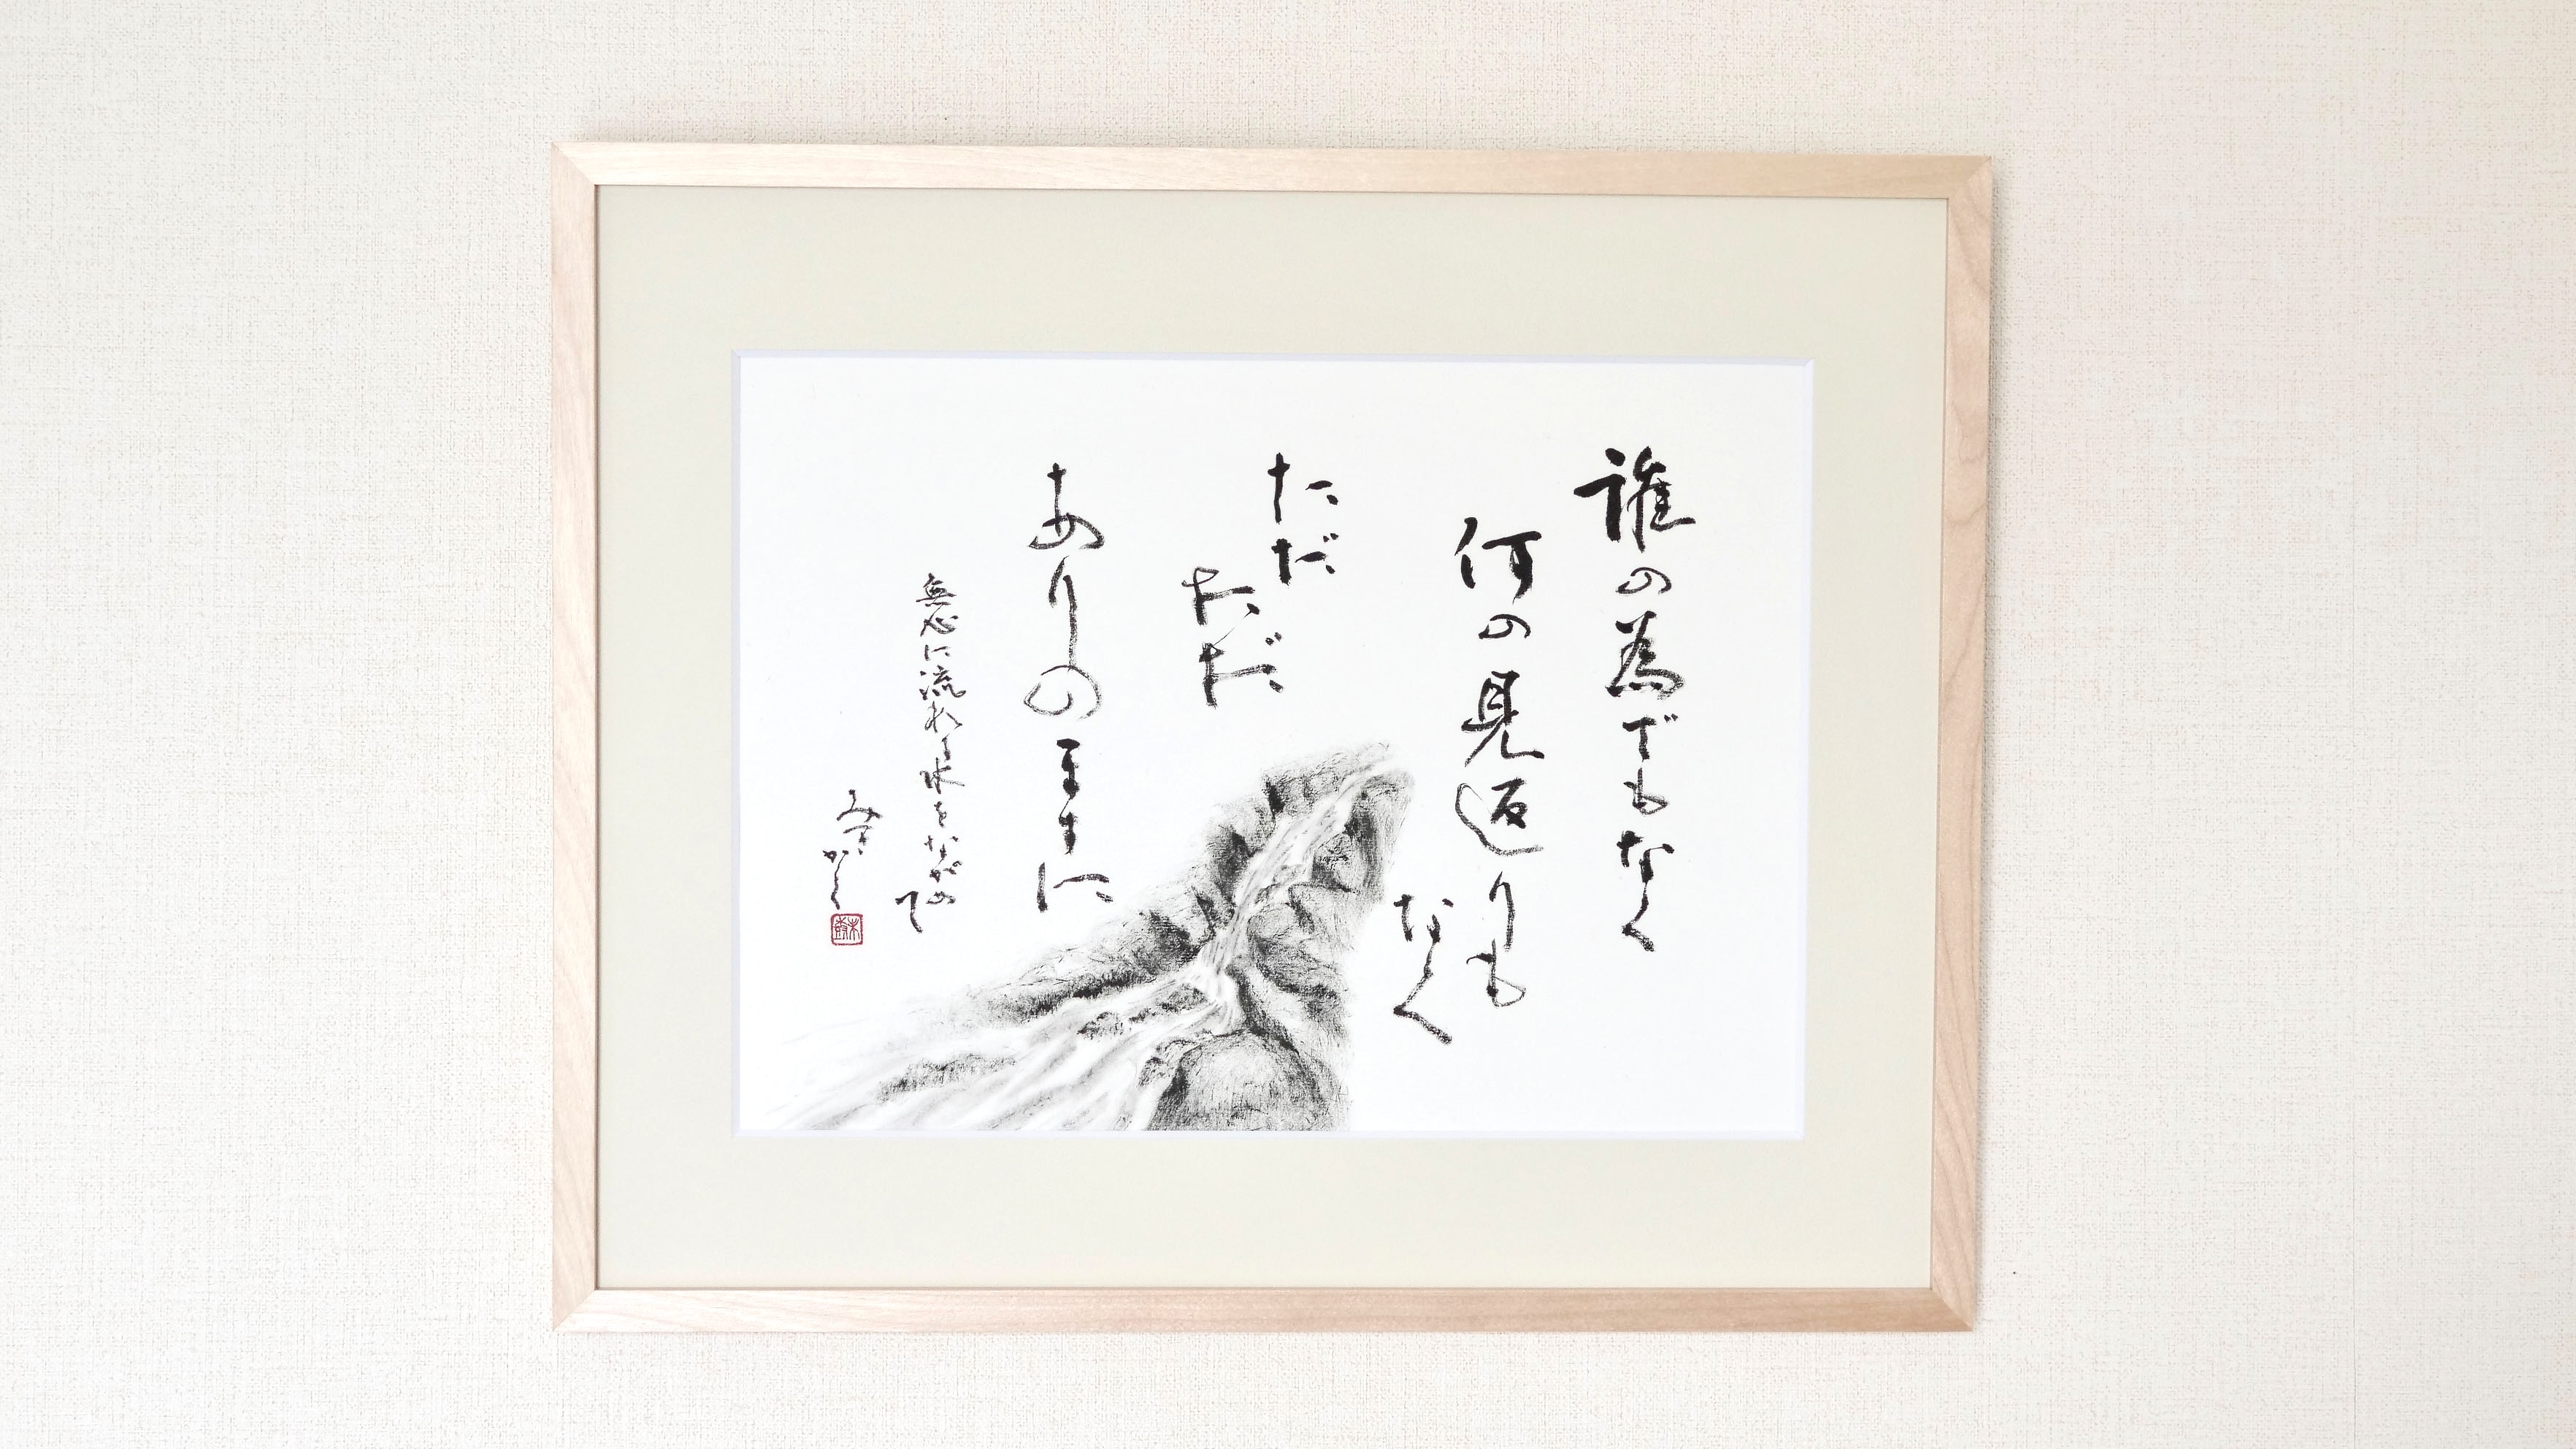 誰の為でもなく
何の見返りも
なく
ただ
ただ
ありのままに
無心に流れる水をながめ
て
かく